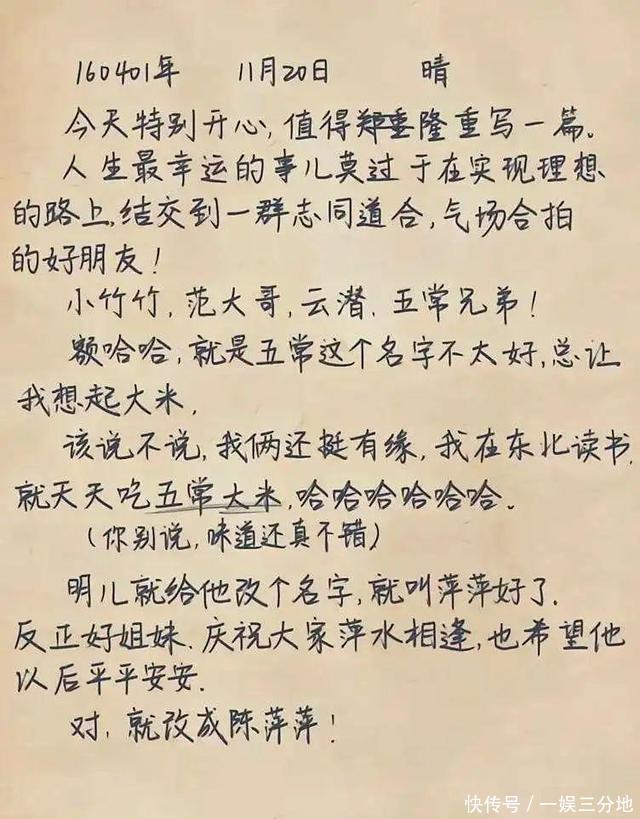 160401年 11月20日 晴
今天特别开心,值得隆重写一篇。
人生最幸运的事儿莫过于在实现理想
的路上,结交到一群志同道合,气场合拍
的好朋友!
小竹竹,范大哥,云潜.五常兄弟!
额哈哈,就是五常这个名字不太好,总让
我想起大米,
该说不说,我俩还挺有缘,我在东北读书,
就天天吃五常大米,哈哈哈哈哈哈。
(你别说,味道还真不错)
明儿就给他改个名字,就叫萍萍好了.
反正好姐妹.庆祝大家萍水相逢,也希望他
以后平平安安.
对,就改成陈萍萍!
快传号/一娱三分地